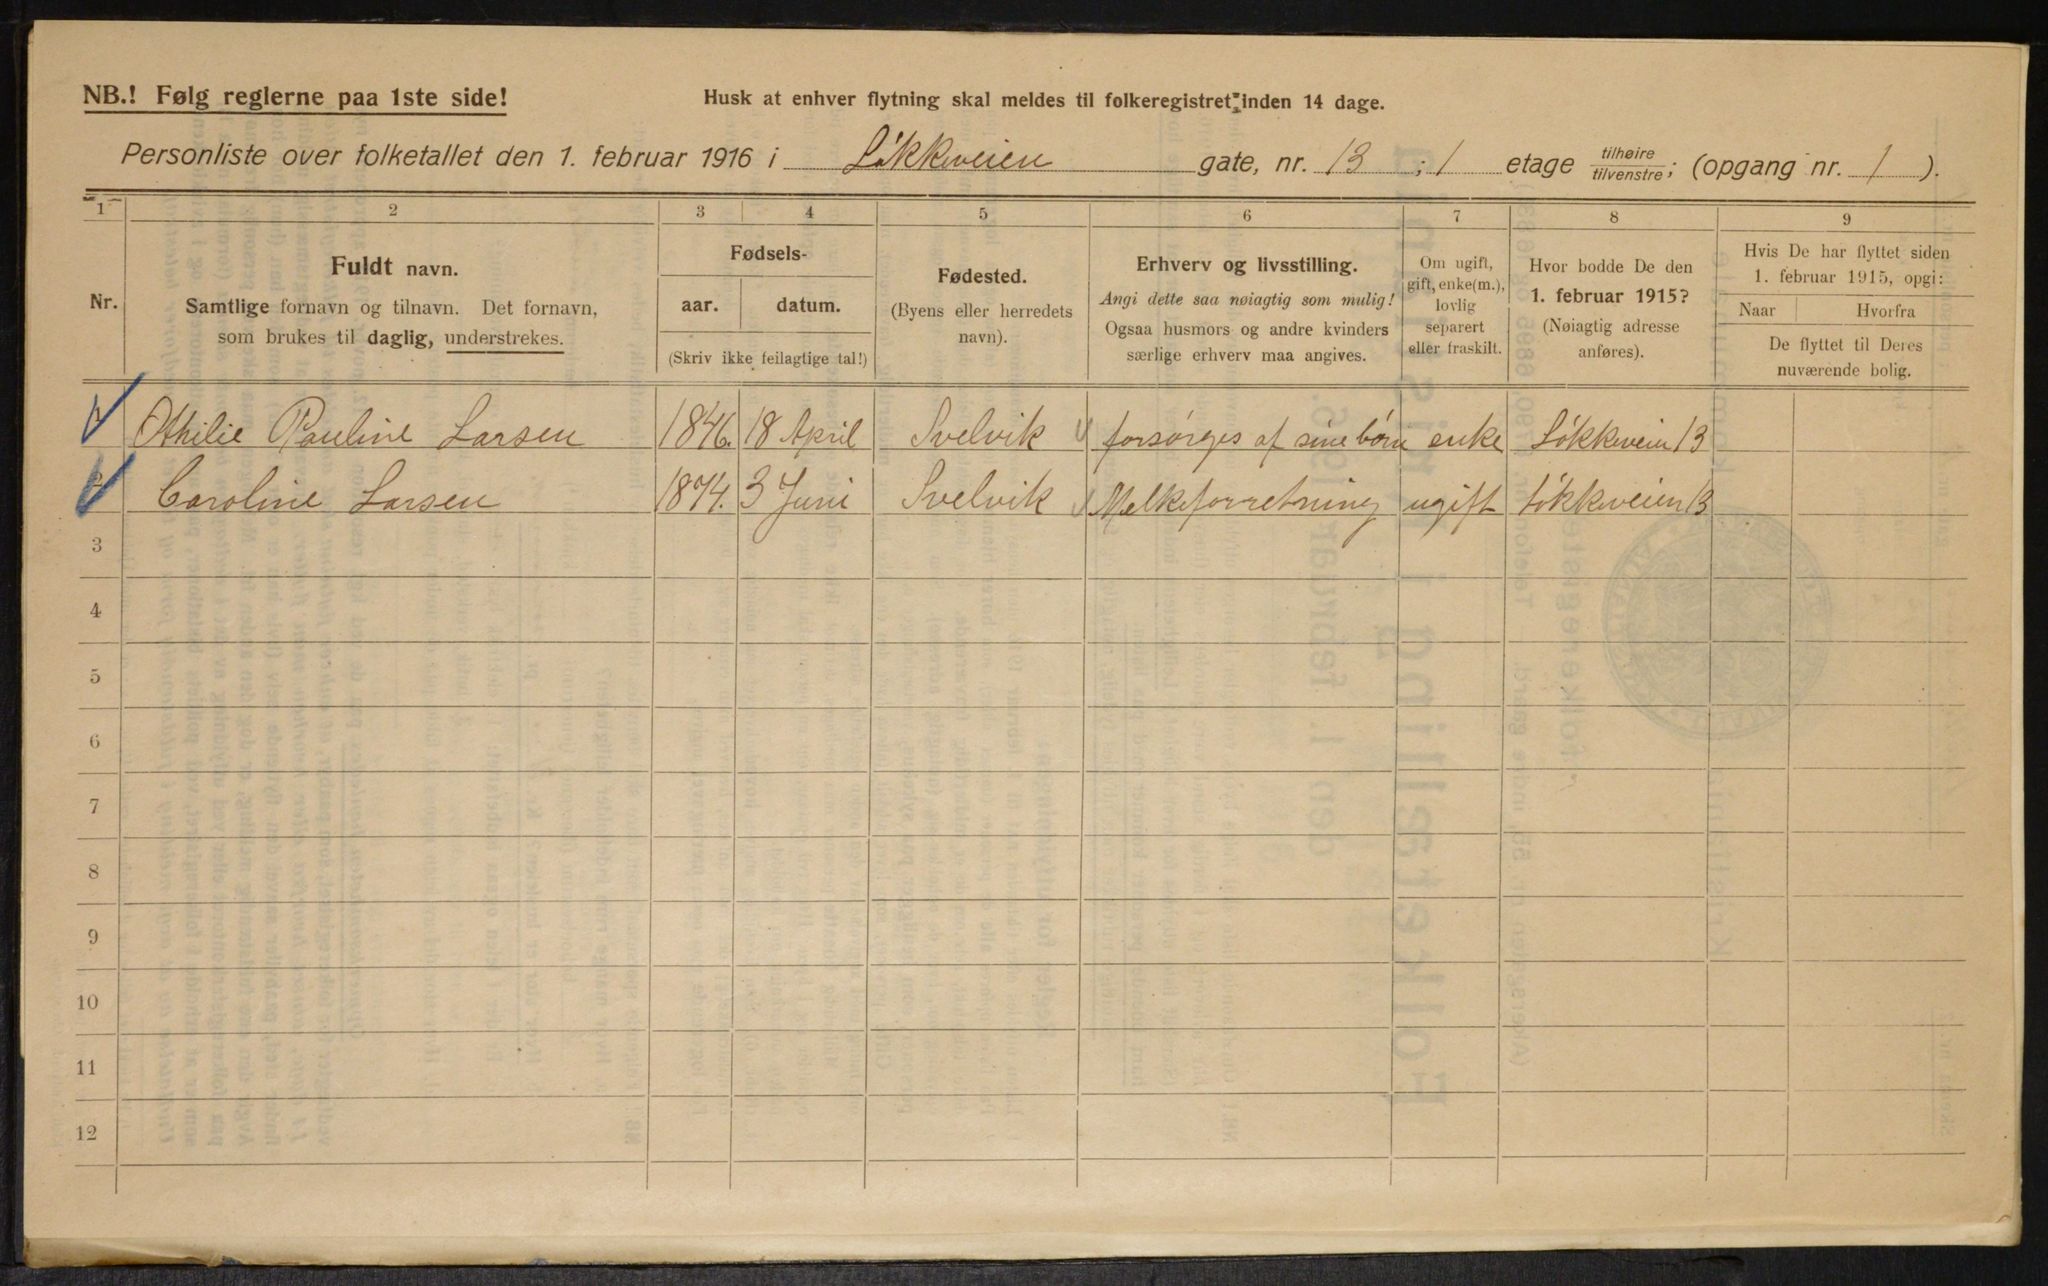 NB.! Følg reglerne paa 1ste side!
Husk at enhver flytning skal meldes til folkeregistret inden 14 dage.
Personliste over folketallet den 1. februar 1916 i Løkkeveien gate, nr. 13 ; 1 etage tilhøire/tilvenstre; (opgang nr. 1 ).
1 2 3 4 5 6 7 8 9
Nr.
Fuldt navn.
Samtlige fornavn og tilnavn. Det fornavn,
som brukes til daglig, understrekes.
Fødsels-
aar. datum.
(Skriv ikke feilagtige tal!)
Fødested.
(Byens eller herredets
navn).
Erhverv og livsstilling.
Angi dette saa nøiagtig som mulig!
Ogsaa husmors og andre kvinders
særlige erhverv maa angives.
Om ugift,
gift, enke(m.),
lovlig
separert
eller fraskilt.
Hvor bodde De den
1. februar 1915?
(Nøiagtig adresse
anføres).
Hvis De har flyttet siden
1. februar 1915, opgi:
Naar Hvorfra
De flyttet til Deres
nuværende bolig.
1 Othilie Pauline Larsen 1846. 18 April Svelvik forsørges af sine børn enke Løkkeveien 13
2 Caroline Larsen 1874. 3 Juni Svelvik Melkeforretning ugift Løkkeveien 13
3
4
5
6
7
8
9
10
11
12